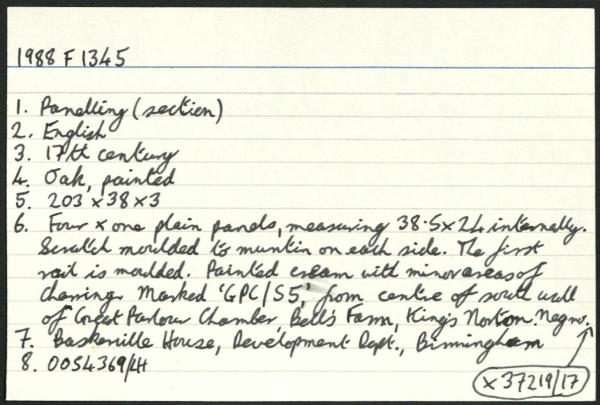 1988 F 1345
1. Panelling (section)
2. English
3. 17th century
4. Oak, painted
5. 203 x 38 x 3
6. Four x one plain panels, measuring 38.5 x 24 internally.
Scratch moulded to muntin on each side. The first
rail is moulded. Painted cream with minor areas of
charring. Marked 'GPC/S5,' from centre of south wall
of Great Parlour Chamber, Bell's Farm, King's Norton. Neg no.
7. Baskerville House, Development Dept., Birmingham
8. 0054369/LH
X37219/17